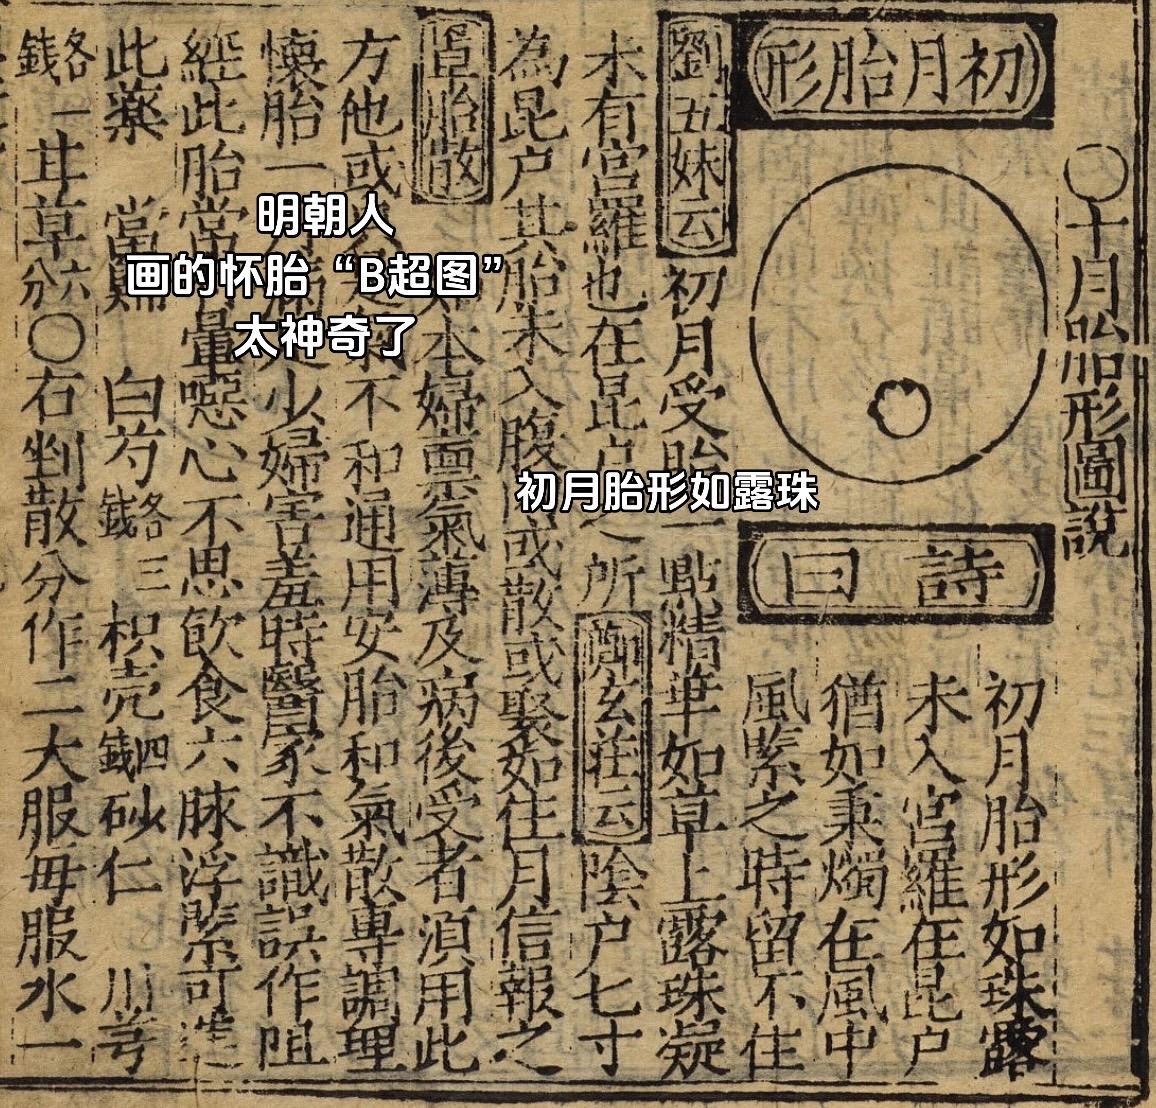 〇十月胎形圖說
初月胎形
詩曰
初月胎形如珠露
未入宮羅在昆户
猶如秉燭在風中
風緊之時留不住
劉五妹云初月受胎一點精華如草上露珠凝
未有宮羅也在昆户之所鄭玄莊云陰户七寸
為昆户其胎未入腹或散或聚如住月信報之
罩胎散本婦禀氣薄及病後受者湏用此
方他或不和通用安胎和氣散專調理
懷胎一少婦害羞時醫家不識誤作阻
經此胎當暈噁心不思飲食六脉浮緊可進
此藥 當歸 白芍各錢三枳壳四錢砂仁 川芎
各錢一甘草六分〇右剉散分作二大服每服水一
明朝人
画的怀胎“B超图”
太神奇了
初月胎形如露珠